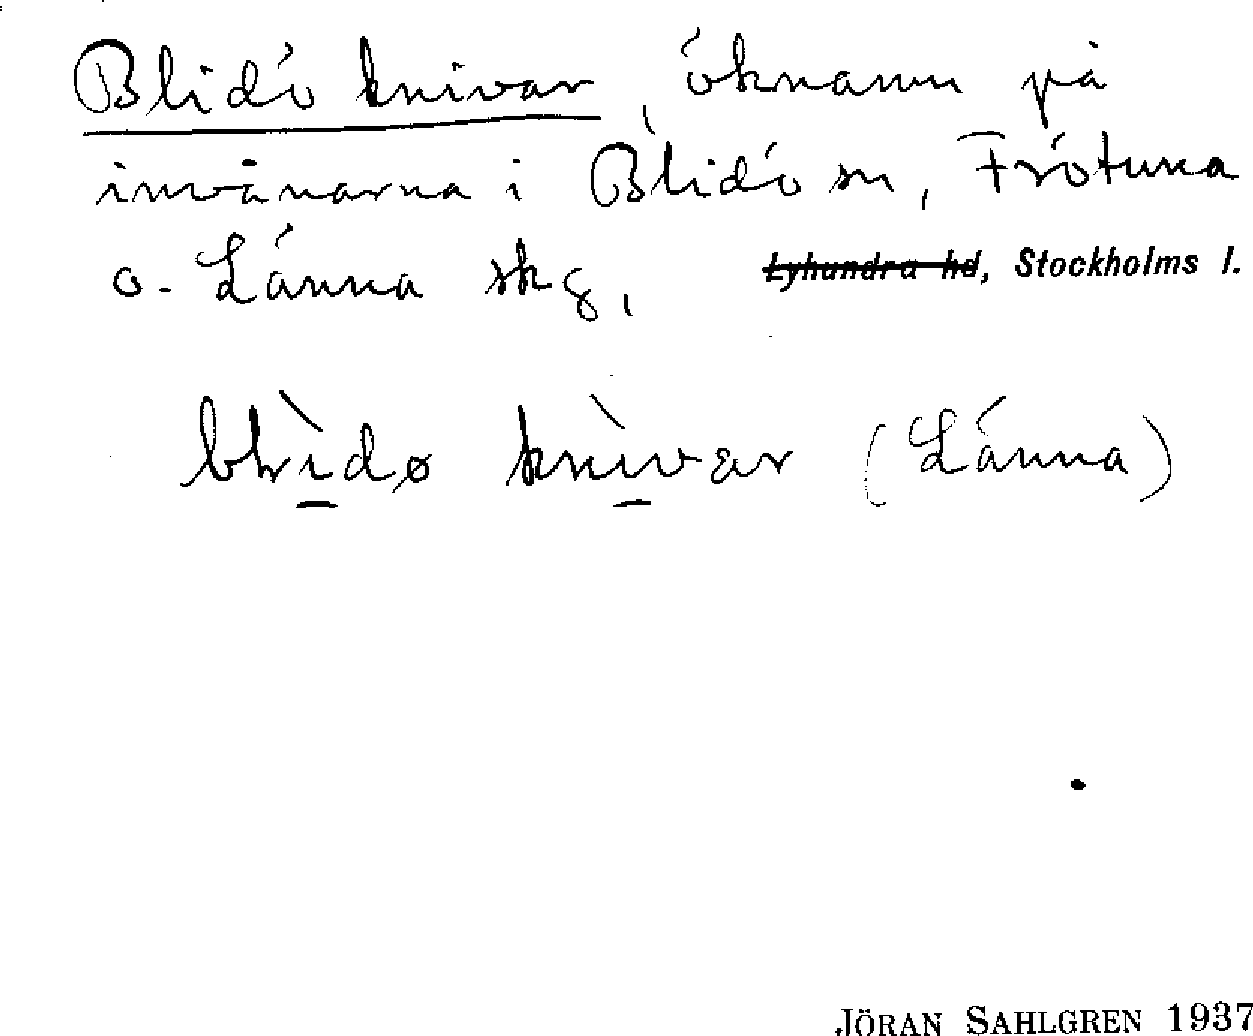 Blidö knivar, öknamn på
invånarna i Blidö sn, Frötuna
o. Länna skg, ~~Lyhundra hd~~, Stockholms l.
blìdø knìvar (Länna)
JÖRAN SAHLGREN 1937